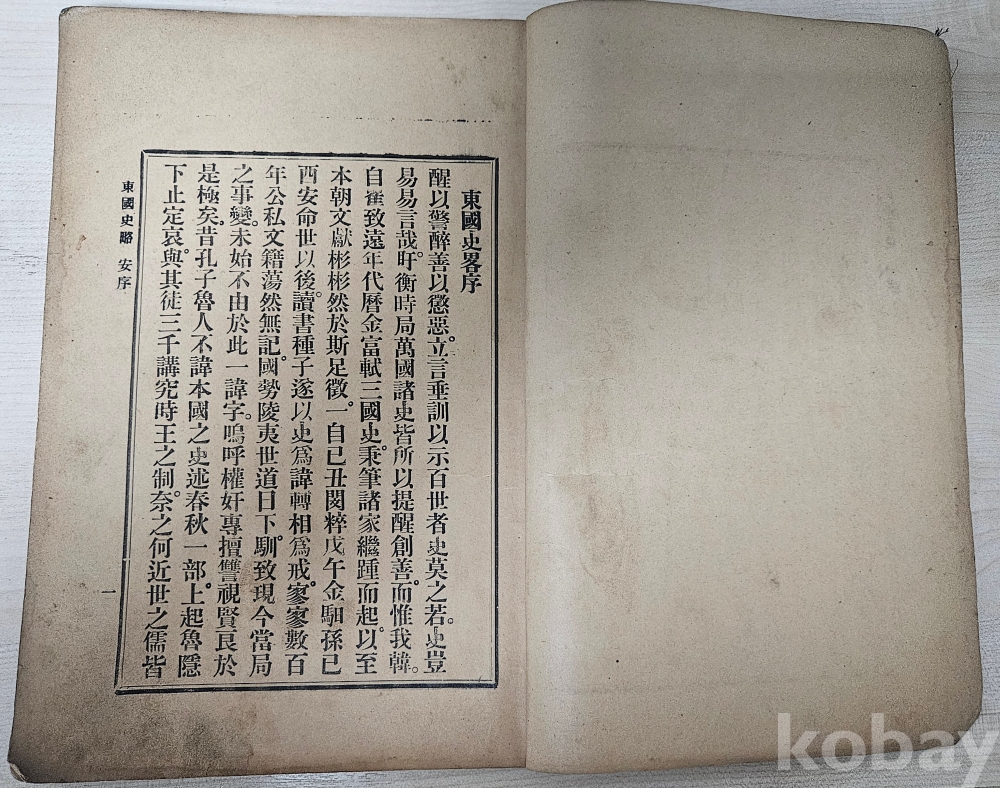 東國史畧序
醒以警醉善以懲惡。立言垂訓以示百世者史莫之若。史豈
易易言哉。盱衡時局萬國諸史皆所以提醒創善。而惟我韓。
自崔致遠年代曆金富軾三國史。秉筆諸家繼踵而起。以至
本朝文獻彬彬然於斯足徵。一自已丑閔粹戊午金馹孫已
酉安命世以後。讀書種子遂以史爲諱轉相爲戒。寥寥數百
年公私文籍蕩然無記。國勢陵夷世道日下。馴致現今當局
之事變。未始不由於此一諱字。嗚呼權奸專擅讐視賢良於
是極矣。昔孔子魯人不諱本國之史述春秋一部。上起魯隱
下止定哀。與其徒三千講究時王之制。奈之何近世之儒皆
東國史略 安序
一
kobay